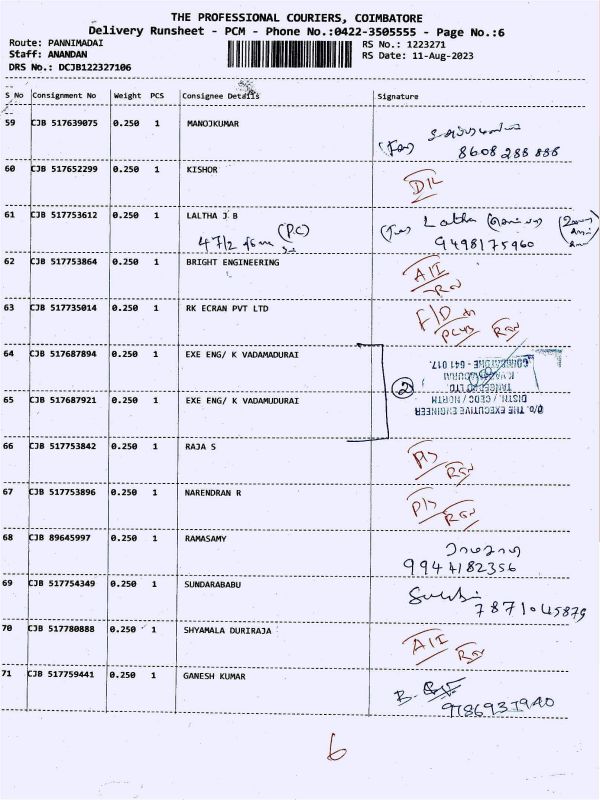 THE PROFESSIONAL COURIERS, COIMBATORE
Delivery Runsheet - PCM - Phone No.:0422-3505555 - Page No.:6
Route: PANNIMADAI
RS No.: 1223271
Staff: ANANDAN
RS Date: 11-Aug-2023
DRS No.: DCJB122327106
S No Consignment No Weight PCS Consignee Details Signature
59 CJB 517639075 0.250 1 MANOJKUMAR
8608288888
60 CJB 517652299 0.250 1 KISHOR
D/L
61 CJB 517753612 0.250 1 LALTHA J B Laltha
(P.C)
9498175960
62 CJB 517753864 0.250 1 BRIGHT ENGINEERING
63 CJB 517735014 0.250 1 RK ECRAN PVT LTD
64 CJB 517687894 0.250 1 EXE ENG/ K VADAMADURAI
COIMBATORE - 641 017.
K.VADAMADURAI
2
TANGEDCO LTD
65 CJB 517687921 0.250 1 EXE ENG/ K VADAMUDURAI
DISTN. / CEDC / NORTH
O/o. THE EXECUTIVE ENGINEER
66 CJB 517753842 0.250 1 RAJA S
67 CJB 517753896 0.250 1 NARENDRAN R
68 CJB 89645997 0.250 1 RAMASAMY
9944182356
69 CJB 517754349 0.250 1 SUNDARABABU
7871045879
70 CJB 517780888 0.250 1 SHYAMALA DURIRAJA
71 CJB 517759441 0.250 1 GANESH KUMAR
9786937940
6